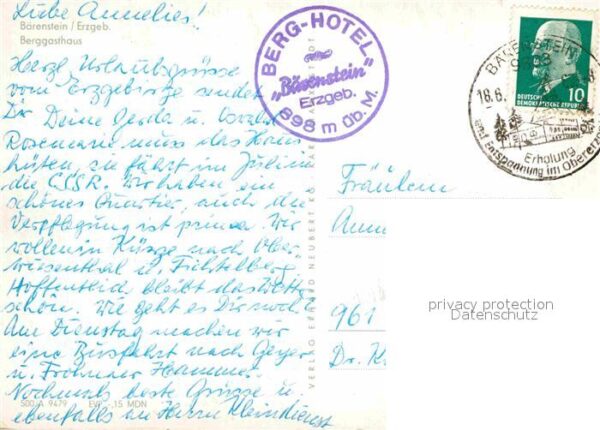 Liebe Annelies!
Bärenstein / Erzgeb.
Berggasthaus
Herzl. Urlaubsgrüsse
vom Erzgebirge sendet
Dir Deine Gerda u.
Rosemarie muss das Haus
hüten, sie fährt im Juli in
die ČSSR. Wir haben ein
schönes Quartier, auch die
Verpflegung ist prima. Wir
wollen in Kürze nach Ober-
wiesenthal u. Fichtelberg
Hoffentlich bleibt das Wetter
schön. Wie geht es Dir noch?
Am Dienstag machen wir
eine Busfahrt nach Geyer
u. Frohnauer Hammer.
Nochmals beste Grüsse u.
ebenfalls an Herrn Kleindienst
500 A 9479 EVP -,15 MDN
VERLAG ERHARD NEUBERT KG
BERG-HOTEL
„Bärenstein“
Erzgeb.
898 m üb. M.
BÄRENSTEIN
18.6.
Erholung
und Entspannung im Oberen
10
DEUTSCHE
DEMOKRATISCHE REPUBLIK
Fräulein
Anne
961
Dr. K
privacy protection
Datenschutz